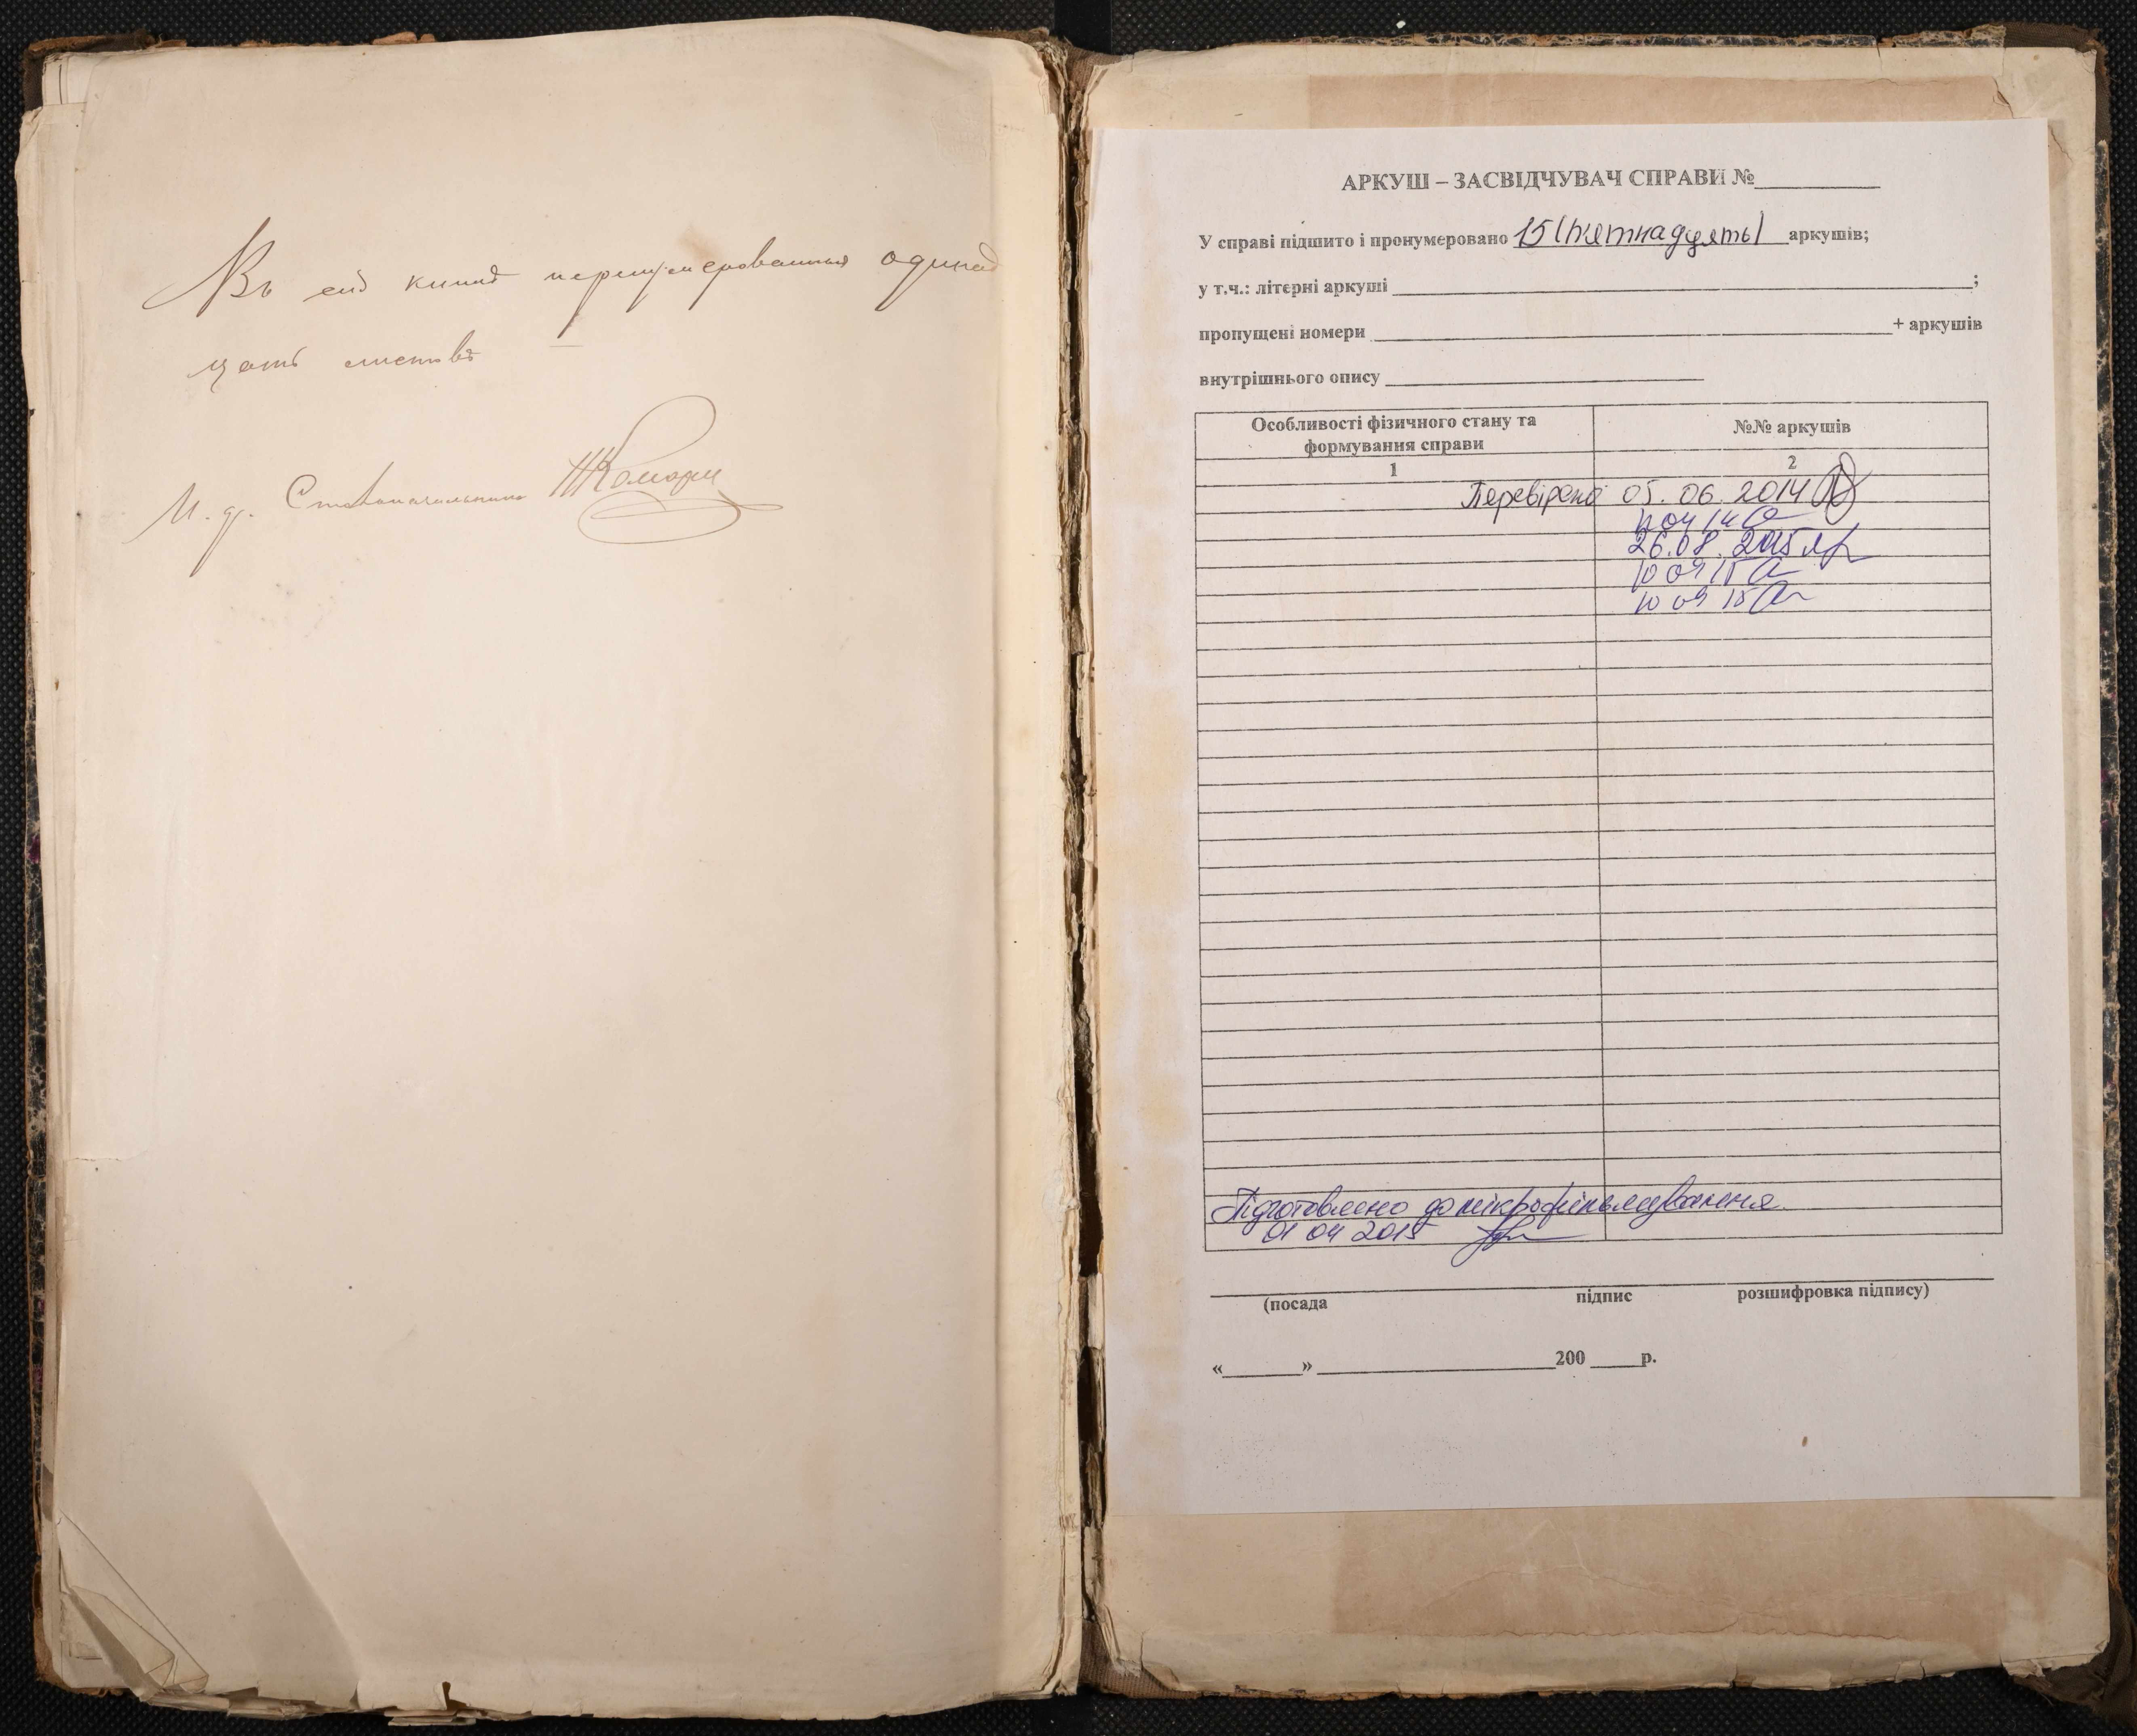 Въ сей книгѣ перенумерованныхъ одинад
цать листовъ
И. д. Столоначальника
АРКУШ – ЗАСВІДЧУВАЧ СПРАВИ №
У справі підшито і пронумеровано 15 (п'ятнадцять) аркушів;
у т.ч.: літерні аркуші ;
пропущені номери + аркушів
внутрішнього опису
Особливості фізичного стану та формування справи
№№ аркушів
1
2
Перевірено 05.06.2014
26.08.2015
10 09 15
10 09 15
Підготовлено до мікрофільмування
01 04 2015
(посада підпис розшифровка підпису)
« » 200 р.